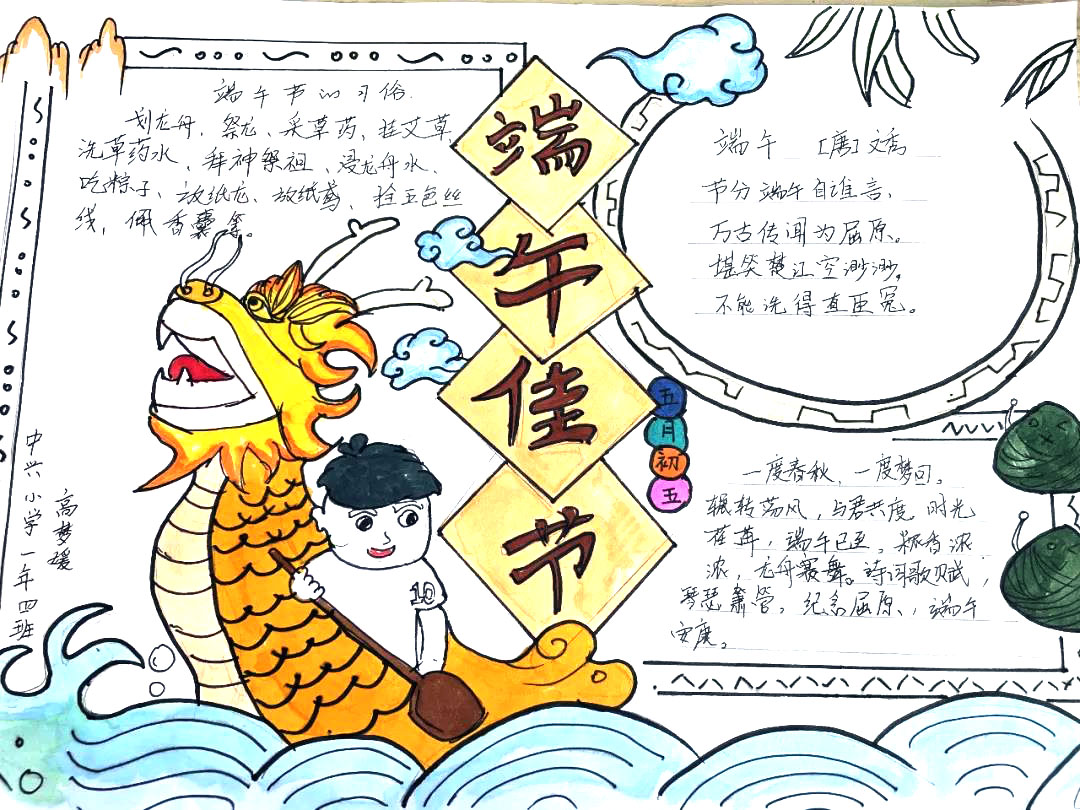 端午节的习俗.
划龙舟、祭龙、采草药、挂艾草、
洗草药水、拜神祭祖、浸龙舟水、
吃粽子、放纸龙、放纸鸢、拴五色丝
线，佩香囊等。
端午佳节
五月初五
端午 [唐]文秀
节分端午自谁言，
万古传闻为屈原。
堪笑楚江空渺渺，
不能洗得直臣冤。
一度春秋，一度梦回。
辗转荡风，与君共度，时光
荏苒，端午已至。粽香浓
浓，龙舟赛舞。诗词歌赋，
琴瑟萧管。纪念屈原，端午
安康。
中兴小学一年四班
高梦媛
10